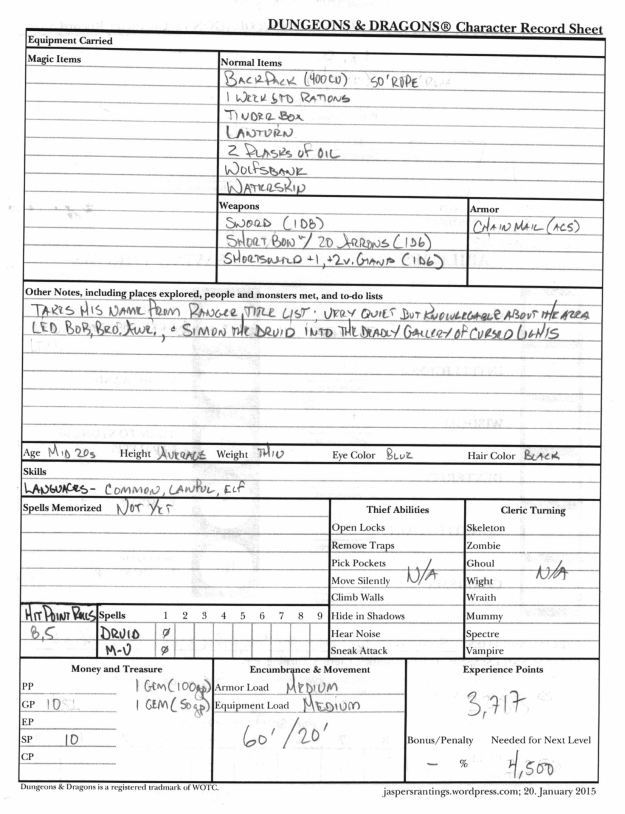 DUNGEONS & DRAGONS® Character Record Sheet
Equipment Carried
Magic Items
Normal Items
BACKPACK (400 CN) 50' ROPE
1 WEEK STD RATIONS
TINDER BOX
LANTURN
2 FLASKS OF OIL
WOLFSBANE
WATERSKIN
Weapons
SWORD (1D8)
SHORT BOW W/ 20 ARROWS (1D6)
SHORTSWORD +1, +2 V. GIANTS (1D6)
Armor
CHAIN MAIL (AC5)
Other Notes, including places explored, people and monsters met, and to-do lists
TAKES HIS NAME FROM RANGER TITLE LIST; VERY QUIET BUT KNOWLEGABLE ABOUT THE AREA
LED BOB, BRO. AWE., & SIMON THE DRUID INTO THE DEADLY GALLERY OF CURSED LIGHTS
Age MID 20s Height AVERAGE Weight THIN Eye Color BLUE Hair Color BLACK
Skills
LANGUAGES - COMMON, LAWFUL, ELF
Spells Memorized NOT YET
Thief Abilities
Open Locks
Remove Traps
Pick Pockets
Move Silently N/A
Climb Walls
Hide in Shadows
Hear Noise
Sneak Attack
Cleric Turning
Skeleton
Zombie
Ghoul
Wight N/A
Wraith
Mummy
Spectre
Vampire
HIT POINT ROLLS
8,5
Spells 1 2 3 4 5 6 7 8 9
DRUID Ø
M-U Ø
Money and Treasure
PP 1 GEM (100gp)
GP 10 1 GEM (50gp)
EP
SP 10
CP
Encumbrance & Movement
Armor Load MEDIUM
Equipment Load MEDIUM
60'/20'
Experience Points
3,717
Bonus/Penalty Needed for Next Level
- % 4,500
Dungeons & Dragons is a registered trademark of WOTC.
jaspersrantings.wordpress.com; 20. January 2015